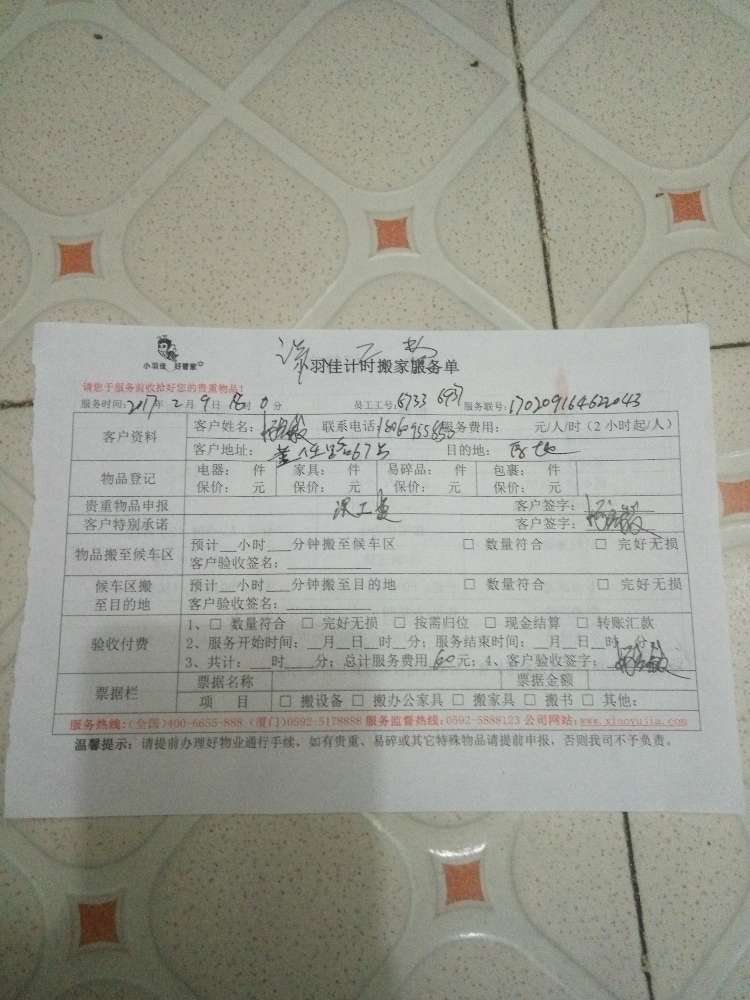 小羽佳 好管家
小羽佳计时搬家服务单
请您于服务前收拾好您的贵重物品!
服务时间: 2017年 2月 9日 时 0分 员工工号: 6733 6937 服务联号: 170209164622043
客户资料 客户姓名: 联系电话: 服务费用: 元/人/时(2小时起/人)
客户地址: 67号 目的地:
物品登记 电器: 件 家具: 件 易碎品: 件 包裹: 件
保价: 元 保价: 元 保价: 元 保价: 元
贵重物品申报 客户签字:
客户特别承诺 客户签字:
物品搬至候车区 预计__小时___分钟搬至候车区 □ 数量符合 □ 完好无损
客户验收签名: __________
候车区搬至目的地 预计__小时___分钟搬至目的地 □ 数量符合 □ 完好无损
客户验收签名: __________
验收付费 1、□ 数量符合 □ 完好无损 □ 按需归位 □ 现金结算 □ 转账汇款
2、服务开始时间: __月__日__时__分; 服务结束时间: __月__日__时__分
3、共计: __时___分; 总计服务费用 60 元; 4、客户验收签字:
票据栏 票据名称 票据金额
项 目 □ 搬设备 □ 搬办公家具 □ 搬家具 □ 搬书 □ 其他:
服务热线:(全国)400-6655-888 (厦门)0592-5178888 服务监督热线:0592-5888123 公司网站:www.xiaoyujia.com
温馨提示: 请提前办理好物业通行手续, 如有贵重、易碎或其它特殊物品请提前申报, 否则我司不予负责。